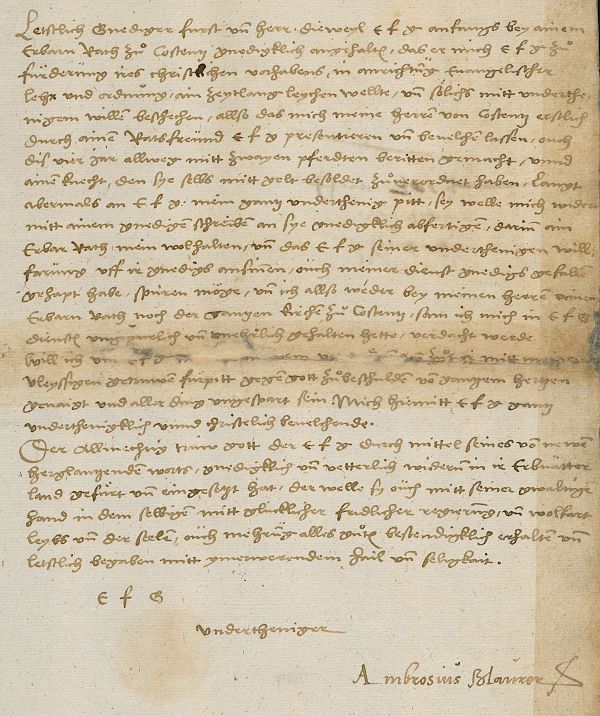 Letstlich Gnediger fürst vnd herr, dieweyl E f g anfangs bey ainem
Erbarn Rath zů Costentz gnedigklich angehalten, das er mich E f g zů
fürderung ires christlichen vorhabens, in anrichtung Euangelischer
Lehr vnd ordnung, ain zeytlang leyhen wellte, vnd solichs mitt vnderthe
nigem willen beschehen, allso das mich meine herren von Costentz erstlich
durch ainen Ratsfreünd E f g presentieren vnd bevelhen lassen, ouch
dis vier jar allweg mitt zwayen pferdten beritten gemacht, vnnd
ainen knecht, den sye selbs mitt gelt besoldet, zůuerordnet haben, Langt
abermals an E f g mein gantz vnderthenig pitt, sey welle mich wider
mitt ainem gnedigen schreiben an sye gnedigklich abfertigen, darinn ain
Erbar Rath mein wolhalten, vnd das E f g seiner vnderthenigen will
farung vff ir gnedigs ansinnen, ouch meiner dienst gnedigs gefallen
gehapt habe, spüren möge, vnd ich allso weder bey meinen herren ainem
Erbarn Rath noch der gantzen kirchen zů Costentz, sam ich mich in E f G
diensten vngepürlich vnd vnehrlich gehalten hette, verdacht werde
Will ich vm mitt
vleyssigen getrüwen fürpitt gegen gott zůbeschulden von gantzem hertzen
genaigt vnd aller ding vngespart sein Mich hiemitt E f g gantz
vnderthenigklich vnnd christelich bevelhende.
Der Allmechtig trüw gott der E f g durch mittel seines von newem
herglantzenden worts, gnedigklich vnd vetterlich widerum in ir Erbuätter
land gefürt vnd eingesetzt hat, der welle sy ouch mitt seiner gwaltigen
hand in dem selbigen mitt glücklicher fridlicher regierung, vnd wolfart
leybs vnd der seelen, ouch mehrung alles gůten bestendigklich erhalten vnd
letstlich begaben mitt ymerwerendem hail vnd seligkait.
E f G
vndertheniger
Ambrosius Blaurer